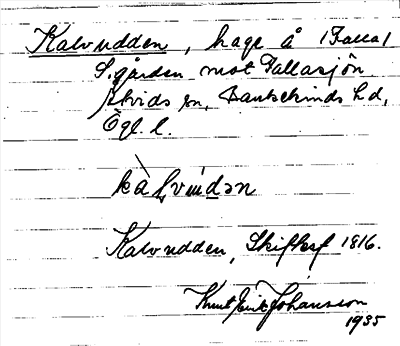 Kalvudden, hage å (Falla)
S.gården mot Fallasjön
Åtvids sn, Bankekinds hd,
Ögl. l.
kàlvu̇dən
Kalvudden, Skifteskf 1816.
Knut Erik Johansson
1935